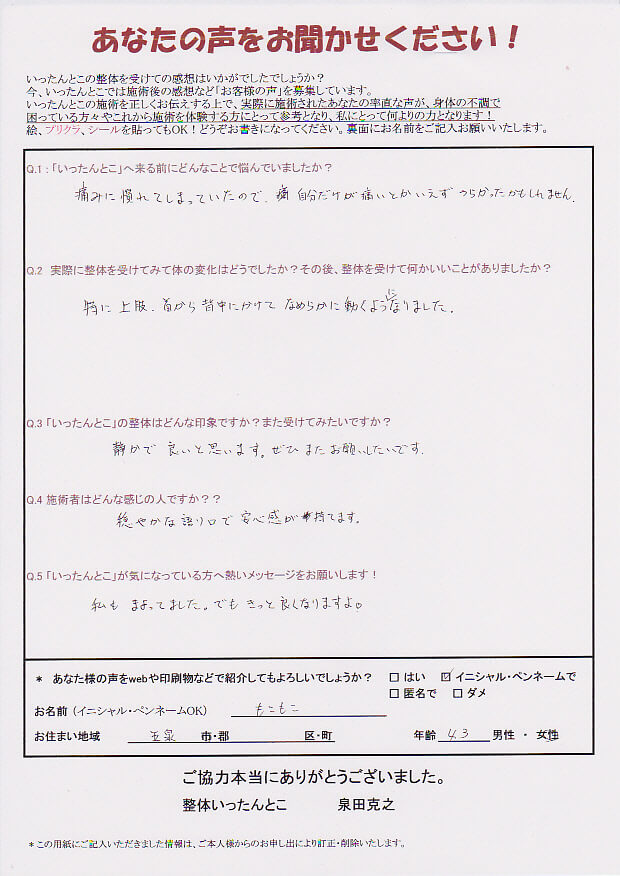 あなたの声をお聞かせください！
いったんとこの整体を受けての感想はいかがでしたでしょうか？
今、いったんとこでは施術後の感想など「お客様の声」を募集しています。
いったんとこの施術を正しくお伝えする上で、実際に施術されたあなたの率直な声が、身体の不調で
困っている方々やこれから施術を体験する方にとって参考となり、私にとって何よりの力となります！
絵、プリクラ、シールを貼ってもOK！どうぞお書きになってください。裏面にお名前をご記入お願いいたします。
Q.1：「いったんとこ」へ来る前にどんなことで悩んでいましたか？
痛みに慣れてしまっていたので、自分だけが痛いとかいえず つらかったかもしれません。
Q.2 実際に整体を受けてみて体の変化はどうでしたか？その後、整体を受けて何かいいことがありましたか？
特に上肢、首から背中にかけて なめらかに動くようになりました。
Q.3 「いったんとこ」の整体はどんな印象ですか？また受けてみたいですか？
静かで 良いと思います。ぜひ またお願いしたいです。
Q.4 施術者はどんな感じの人ですか？？
穏やかな語り口で 安心感が持てます。
Q.5 「いったんとこ」が気になっている方へ熱いメッセージをお願いします！
私も まよってました。でも きっと良くなりますよ。
＊ あなた様の声をwebや印刷物などで紹介してもよろしいでしょうか？ □ はい ☑ イニシャル・ペンネームで
□ 匿名で □ ダメ
お名前（イニシャル・ペンネームOK） もこもこ
お住まい地域 市・郡 区・町 年齢 43 男性 ・ 女性
ご協力本当にありがとうございました。
整体いったんとこ 泉田克之
＊この用紙にご記入いただきました情報は、ご本人様からのお申し出により訂正・削除いたします。